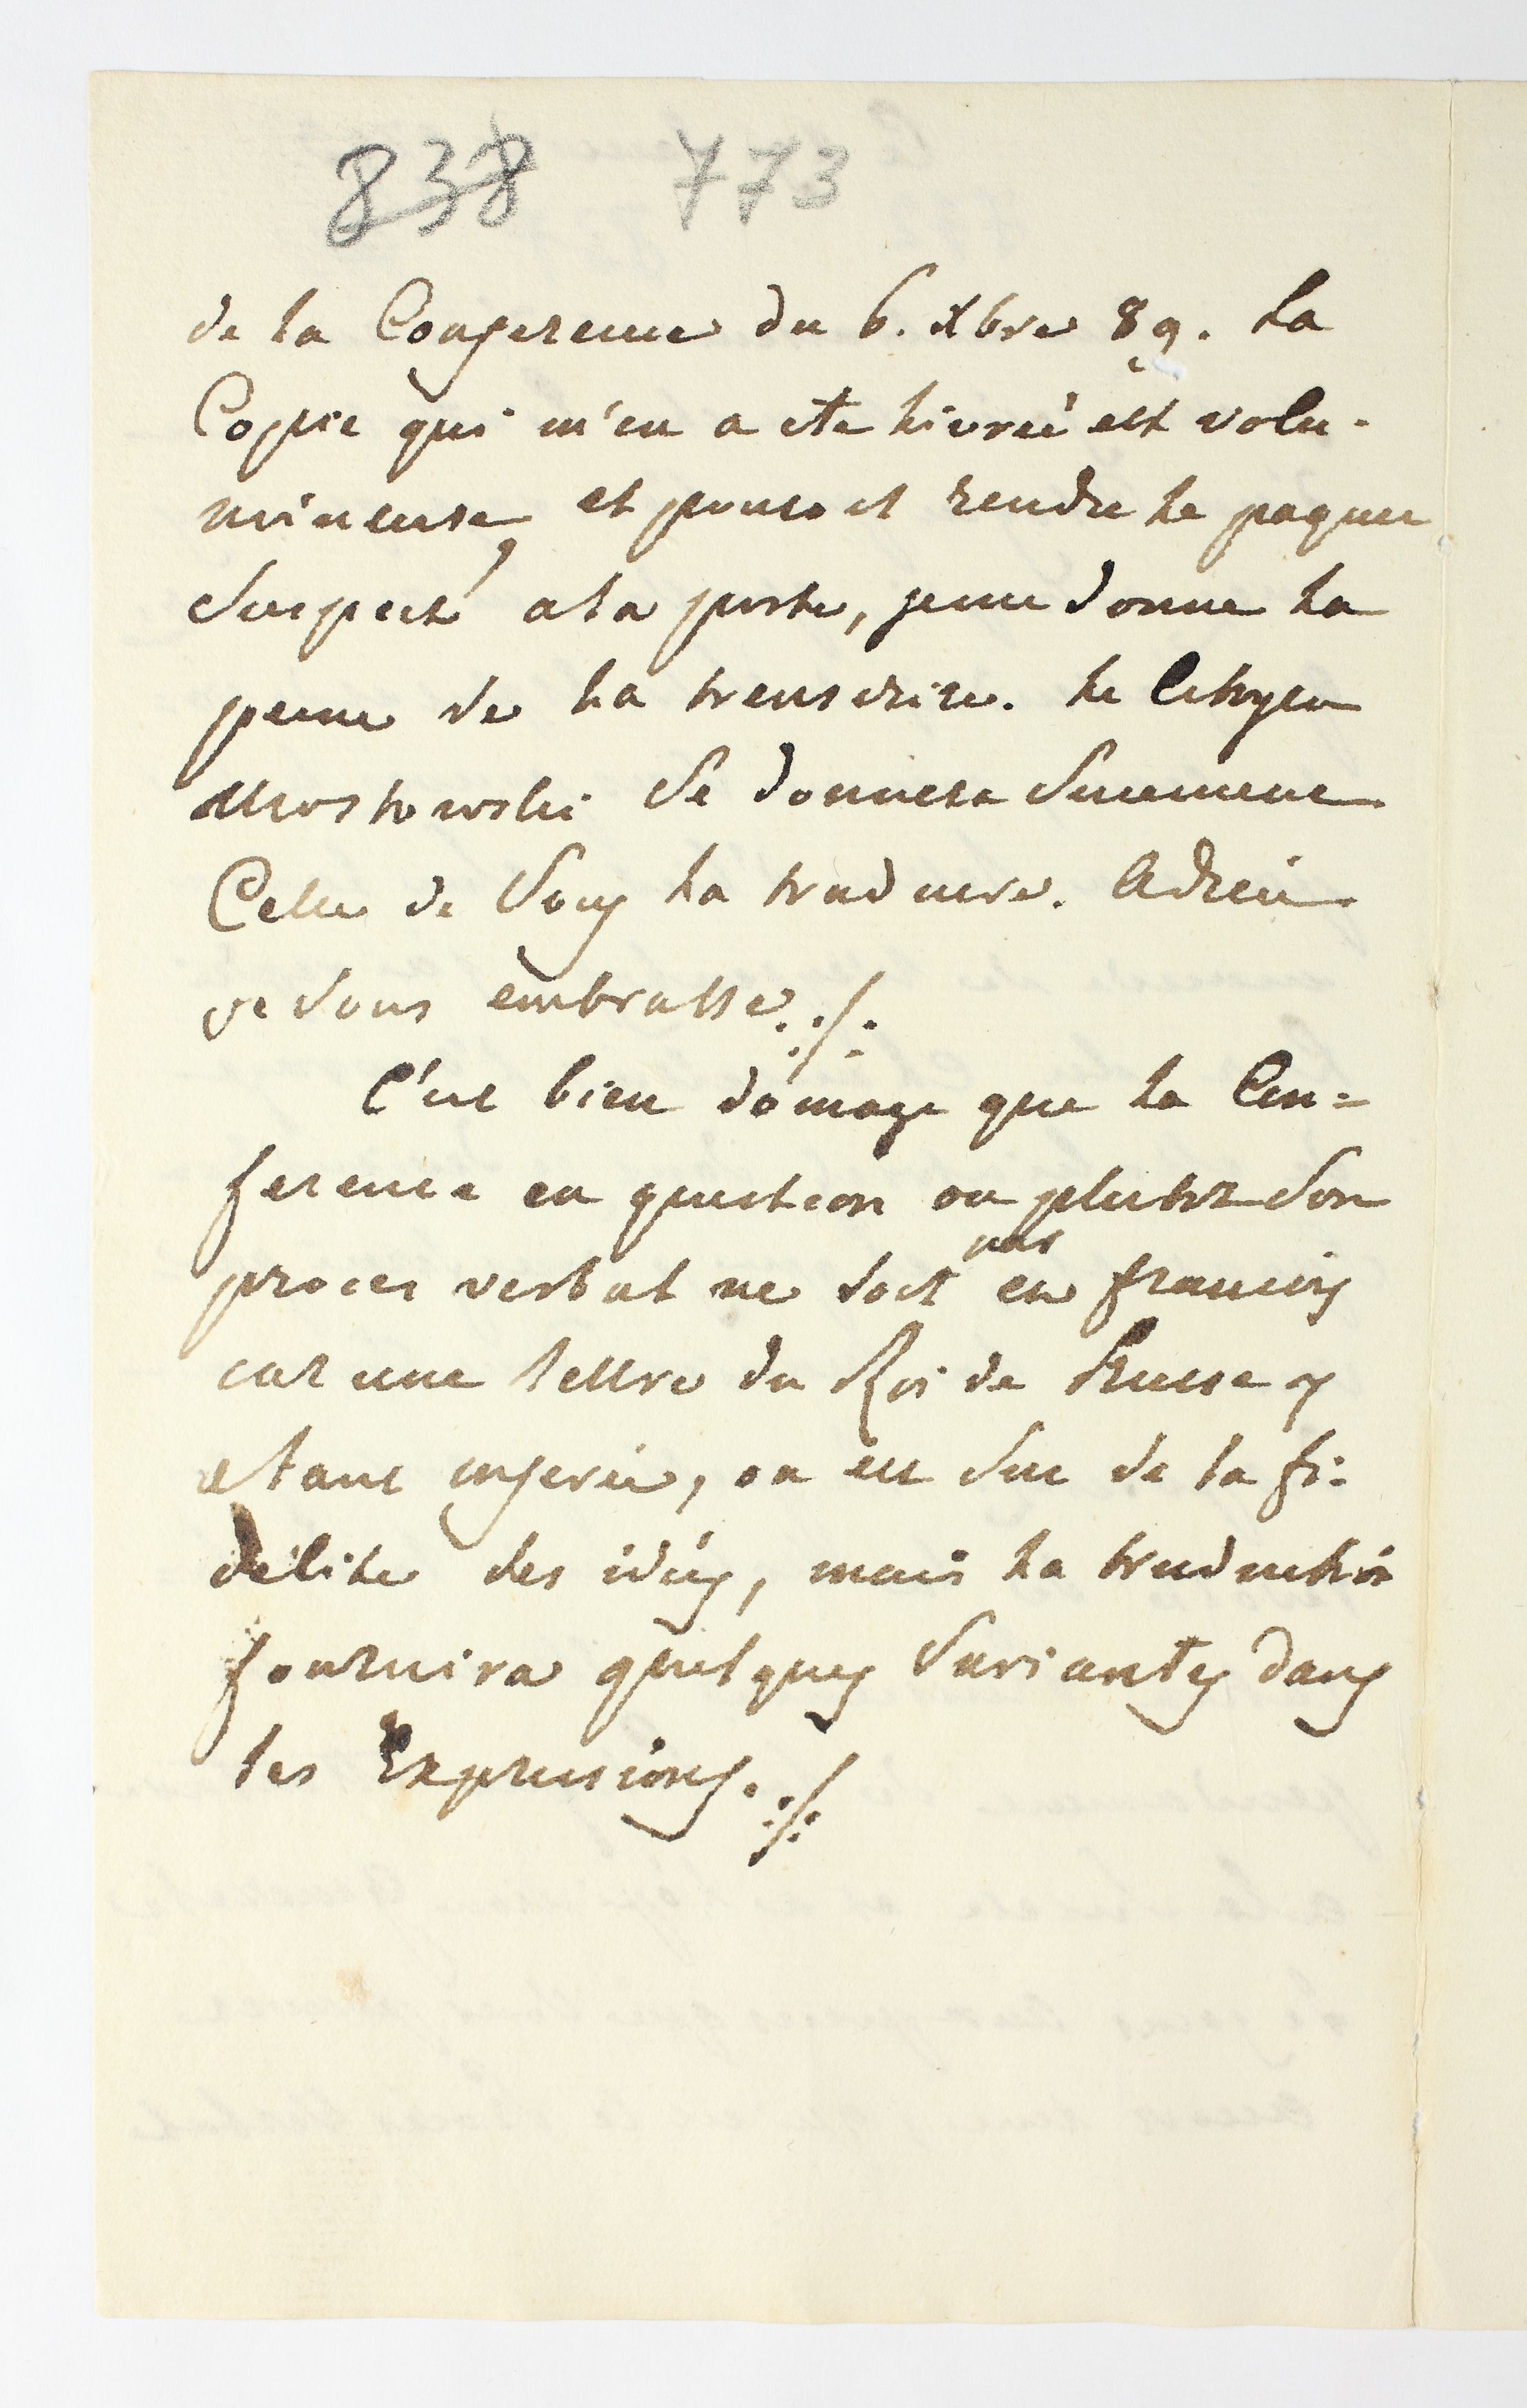 838 773
de la Conference du 6. Xbre 89. La
Copie qui m'en a ete livreé est volu-
mineuse, et pouvoit rendre le paquet
Suspect a la poste, je me donne la
peine de la transcrire. Le Citoyen
Mostowski Se donnera Surement
Celle de Vous la traduire. Adieu
je Vous embrasse ./.
C'est bien domage que la Con=
ference en question ou plutot Son
proces verbal ne soit pas en francois
car une lettre du Roi de Prusse y
etant insereé, on est Sur de la fi-
délite des idées, mais la traduction
fournira quelques Variantes dans
les Expressions ./.